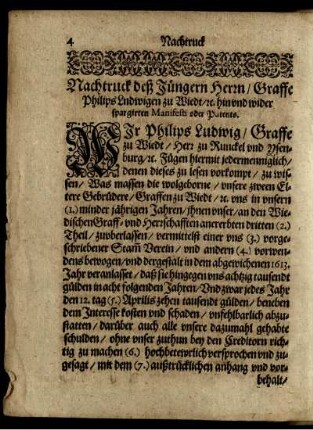 4 Nachtruck
Nachtruck deß Jüngern Herrn / Graffe
Philips Ludwigen zu Wiedt / ꝛc. hin und wider
spargierten Manifests oder Patents.
WIr Philips Ludwig / Graffe
zu Wiedt / Herz zu Runckel und Ysen-
burg / ꝛc. Fügen hiermit jedermenniglich /
denen dieses zu lesen vorkompt / zu wis-
sen / Was massen die wolgeborne / unsere zween El-
tere Gebrüdere / Graffen zu Wiedt / ꝛc. uns in unsern
(1.) minder jährigen Jahren / ihnen unser / an den Wie-
dischen Graff- und Herrschafften anererbten dritten (2.)
Theil / zuüberlassen / vermittelst einer uns (3.) vorge-
schriebener Stam̃ Verein / und andern (4.) vorwen-
dens bewogen / und dergestalt in dem abgewichenen 1613.
Jahr veranlasset / daß sie hingegen uns achtzig tausendt
gülden in acht folgenden Jahren / Und zwar jedes Jahr
den 12. tag (5.) Aprilis zehen tausendt gülden / beneben
dem Interesse kosten und schaden / unfehlbarlich abzu-
statten / darüber auch alle unsere dazumahl gehabte
schulden / ohne unser zuthun bey den Creditorn rich-
tig zu machen (6.) hochbetewrlich versprochen und zu-
gesagt / mit dem (7.) außtrücklichen anhang und vor-
behalt /